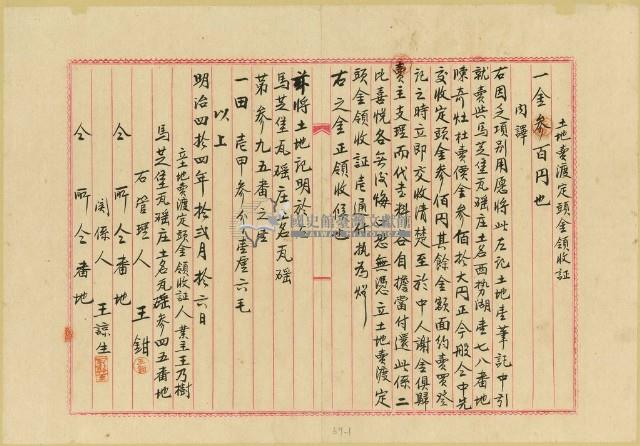 土地賣渡定頭金領收証
一金參百円也
內譯
右因乏項別用愿將此左記土地壹筆託中引
就賣與馬芝堡瓦磘庄土名西勢湖壹七八番地
陳奇灶杜賣價金參佰拾大円正今般仝中先
交收定頭金參佰円其余金額面約賣買登
記之時立即交收清楚至於中人謝金俱歸
賣主支理而代書料各自擔當付還此係二
比喜悅各無後悔恐無憑立土地賣渡定
頭金領收証壹通付執為炤
右之金正領收候也
茲將土地記明於左
馬芝堡瓦磘庄土名瓦磘
第參九五番之壹
一田 壹甲參分壹厘六毛
以上
明治四拾四年拾弍月拾六日
立土地賣渡定頭金領收証人 業主王乃樹
馬芝堡瓦磘庄土名瓦磘參四五番地
右管理人 王鉗
仝所仝番地
関係人 王諒生
仝所仝番地
59-1